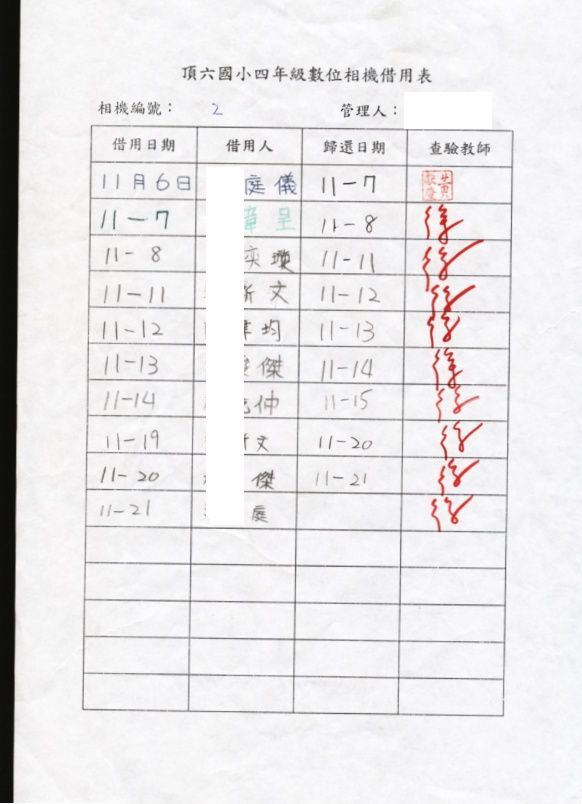 頂六國小四年級數位相機借用表
相機編號： 2 管理人：
借用日期 借用人 歸還日期 查驗教師
11月6日 庭儀 11-7
11-7 章呈 11-8 徐
11-8 奕瓊 11-11 徐
11-11 新文 11-12 徐
11-12 均 11-13 徐
11-13 傑 11-14 徐
11-14 仲 11-15 徐
11-19 文 11-20 徐
11-20 傑 11-21 徐
11-21 庭 徐